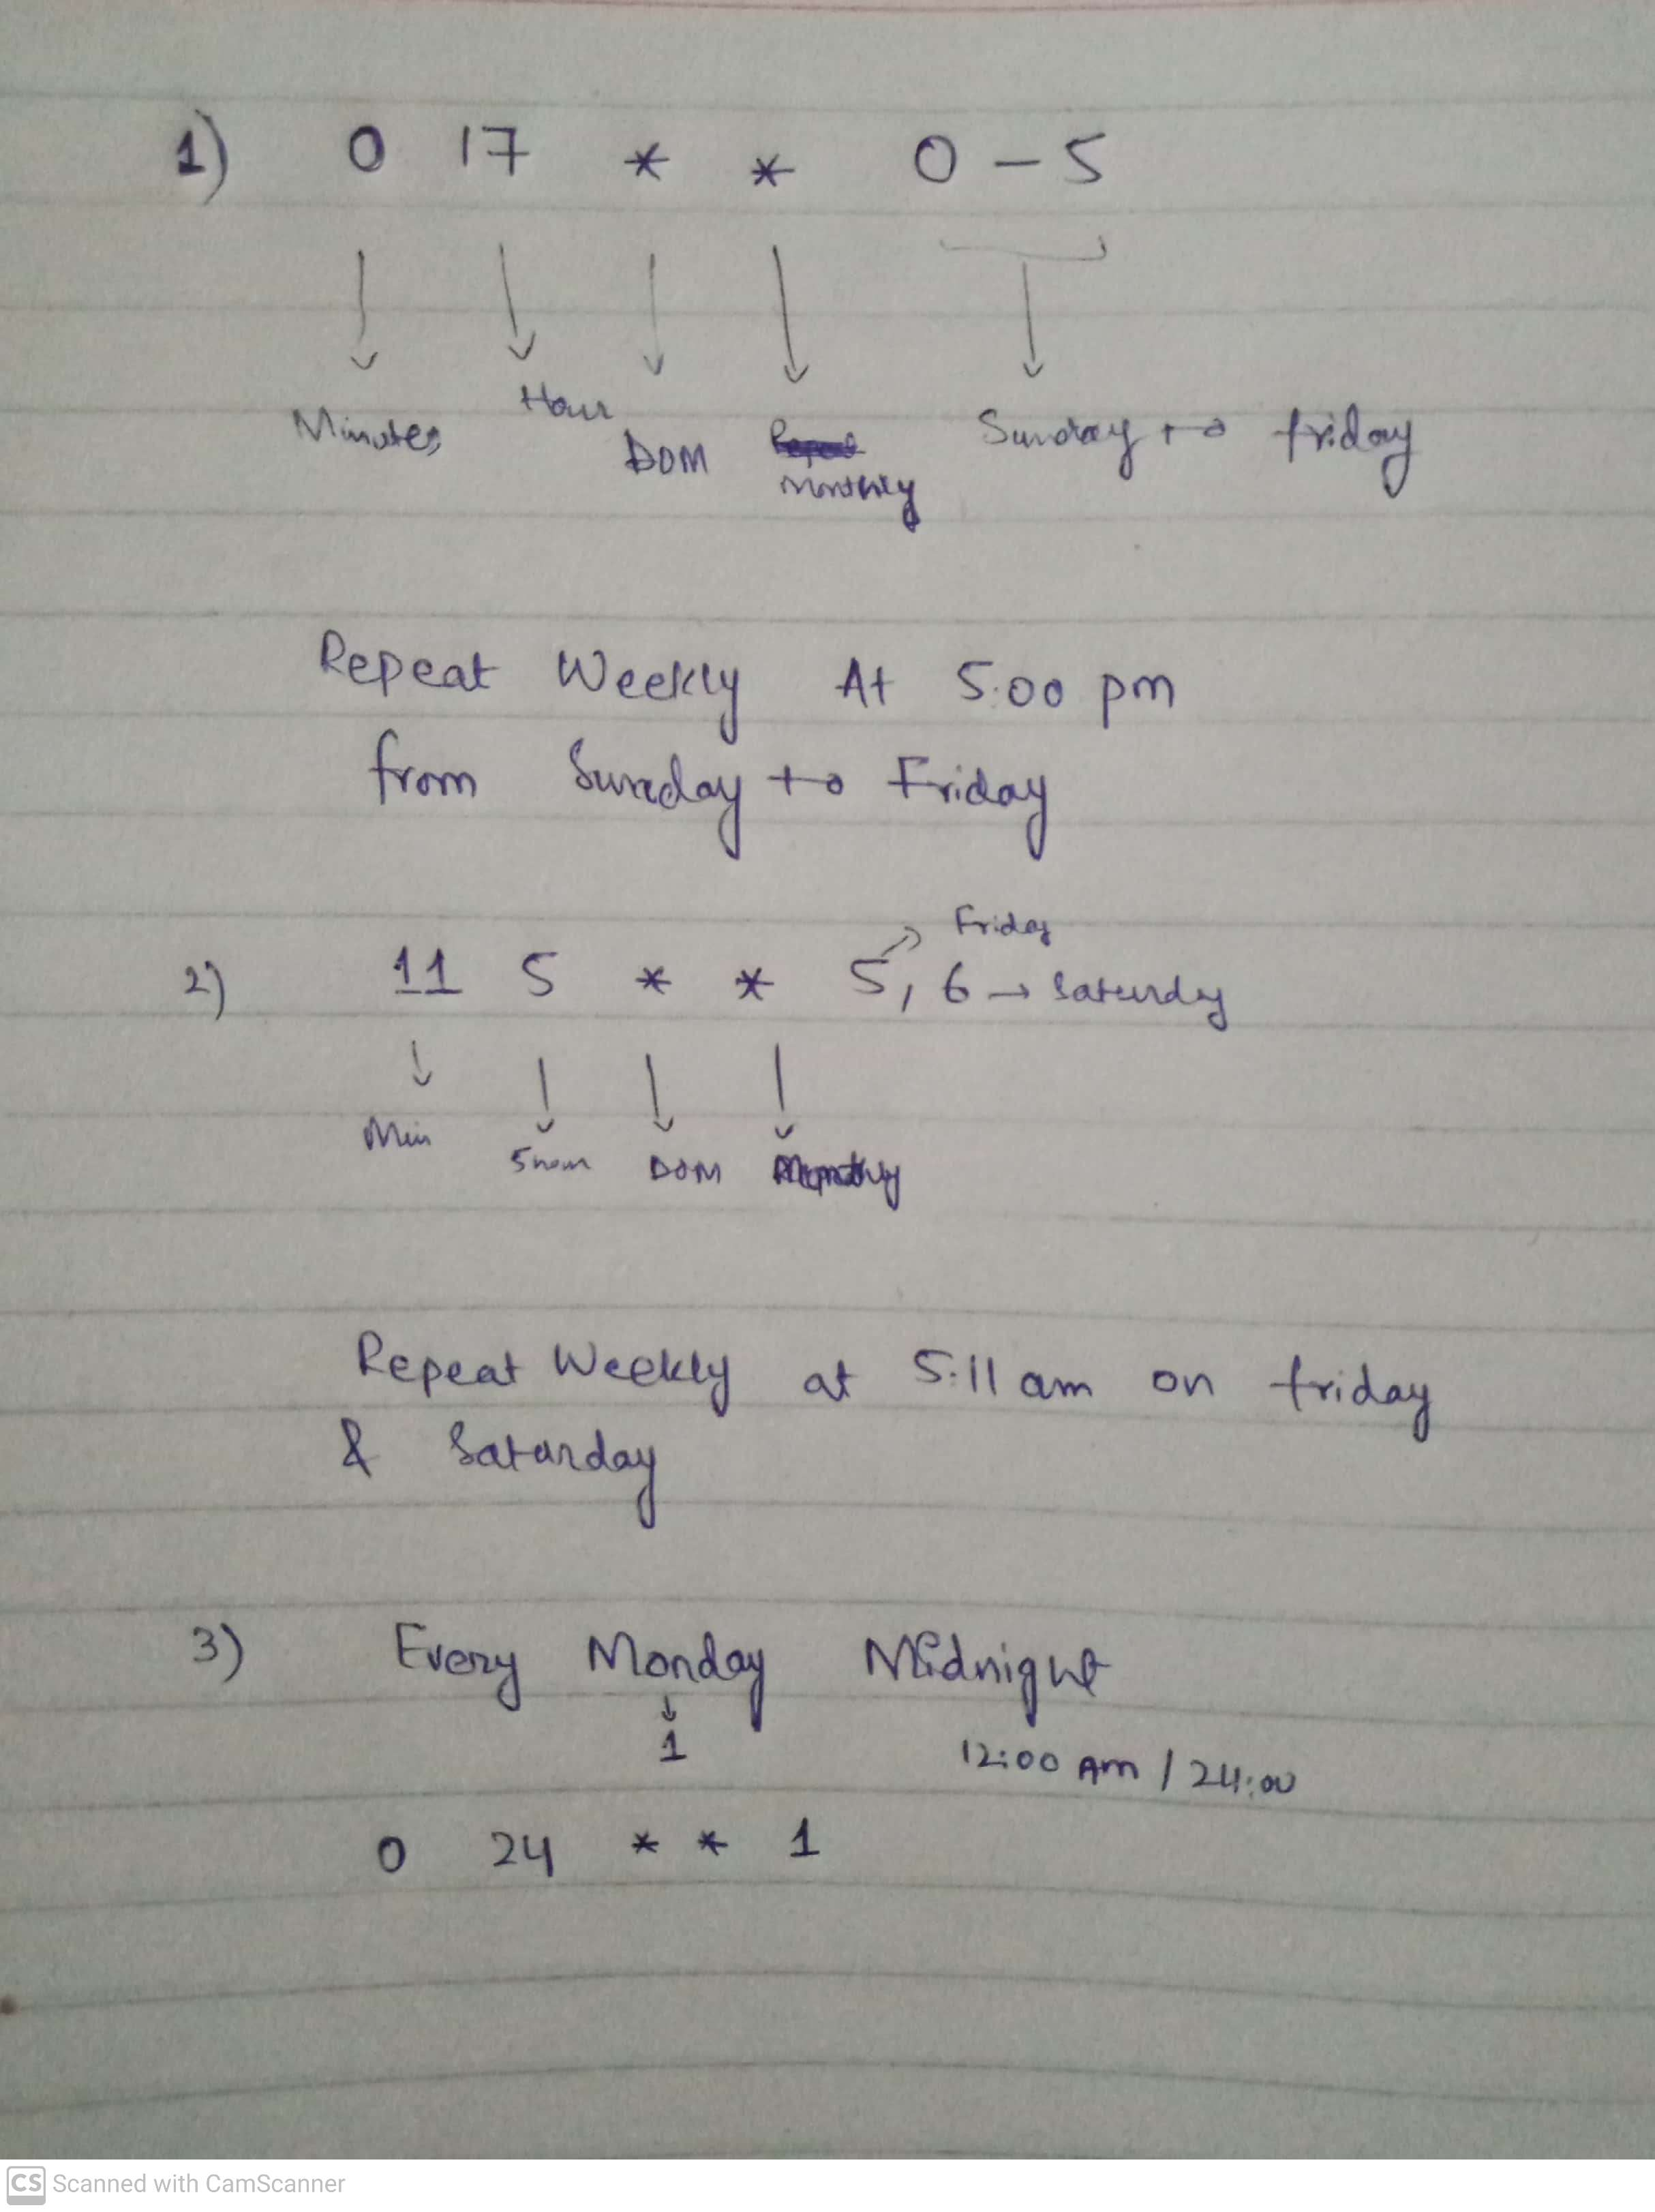 1) 0 17 * * 0 - 5
Minutes Hour DOM monthly Sunday to friday
Repeat Weekly At 5:00 pm
from Sunday to Friday
Friday
2) 11 5 * * 5, 6 → Saturday
Min DOM Monthly
Repeat Weekly at 5:11 am on friday
& Saturday
3) Every Monday Midnight
1
12:00 Am / 24:00
0 24 * * 1
CS Scanned with CamScanner